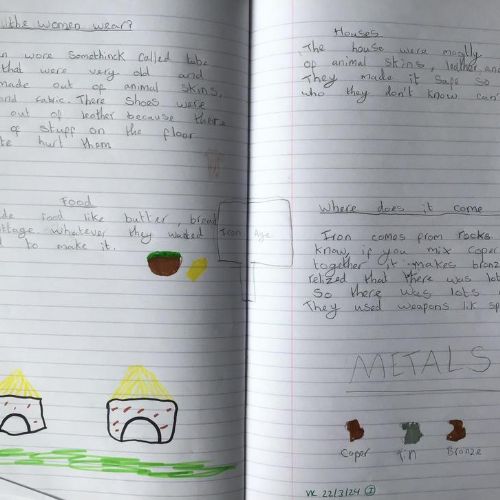 the women wear?
wore somethinck called tube
that were very old and
made out of animal skins,
and fabric. There shoes were
out of leather because there
of stuff on the floor
hurt them
Food
food like butter, bread
cottage whatever they wanted
to make it.
Iron Age
Houses
The house were mostly
of animal skins, leather, and
They made it safe so
who they don't know can't
Where does it come
Iron comes from rocks.
know if you mix coper
together it makes bronz
relized that there was lot
So there was lots
They used weapons lik sp
METALS
Coper
Tin
Bronze
VK 22/3/24 I